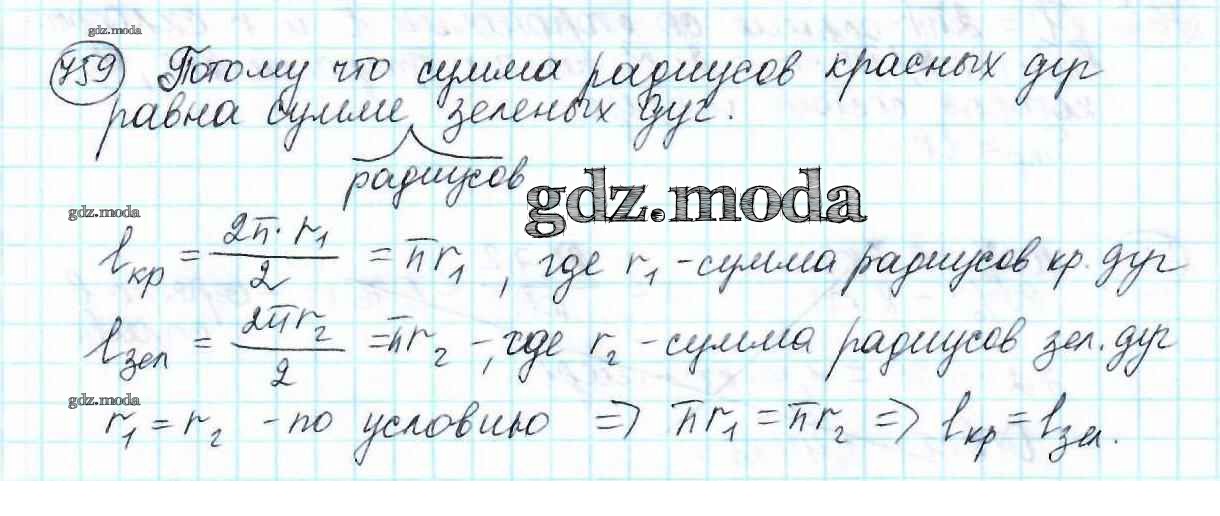 gdz.moda
759 Потому что сумма радиусов красных дуг
равна сумме зеленых дуг.
радиусов
gdz.moda
gdz.moda
lкр = 2π·r₁/2 = πr₁, где r₁ - сумма радиусов кр. дуг
lзел = 2πr₂/2 = πr₂ -, где r₂ - сумма радиусов зел. дуг
gdz.moda
r₁ = r₂ - по условию => πr₁ = πr₂ => lкр = lзел.